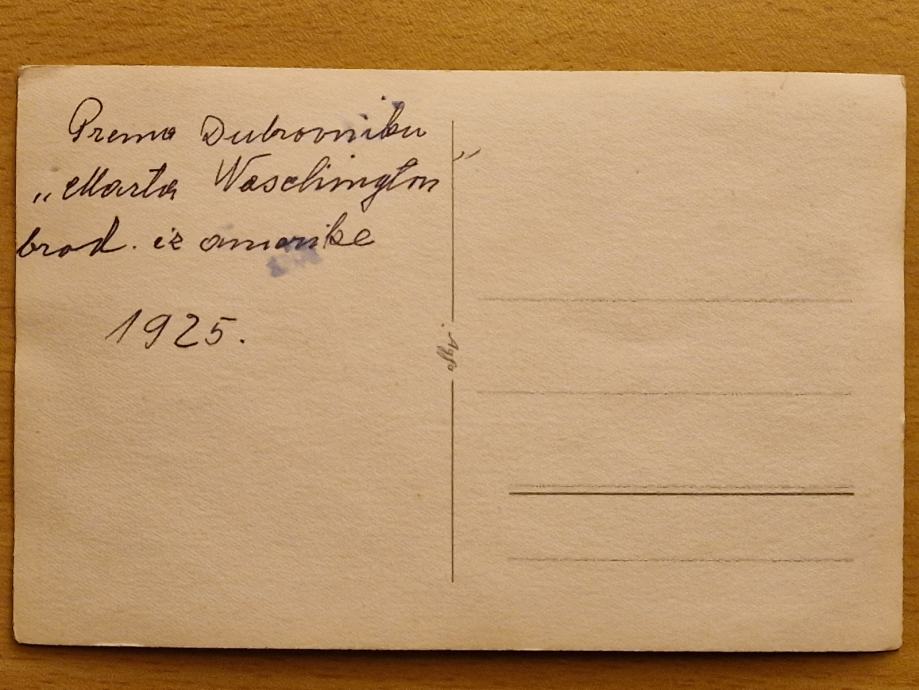 Prema Dubrovniku
„Marta Waschington"
brod. iz amerike
1925.